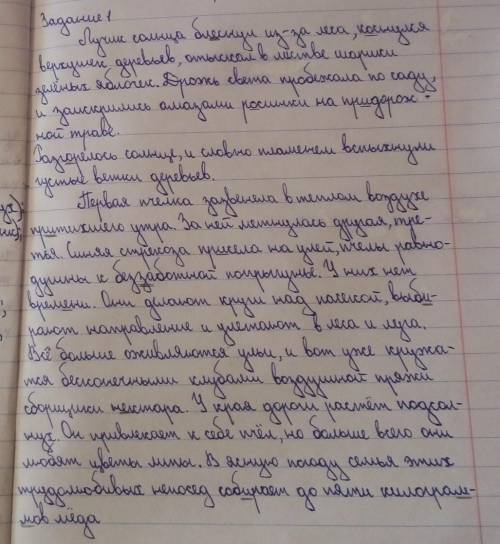 Задание 1
Лучик солнца блеснул из-за леса, коснулся
верхушек деревьев, отыскал в листве шарики
зелёных яблочек. Дрожь света пробежала по саду,
и заискрились алмазами росинки на придорож-
ной траве.
Разгорелось солнце, и словно пламенем вспыхнули
густые ветки деревьев.
Первая пчелка зазвенела в теплом воздухе
притихшего утра. За ней метнулась другая, тре-
тья. Синяя стрекоза присела на улей, пчелы равно-
душны к беззаботной попрыгунье. У них нет
времени. Они делают круги над пасекой, выби-
рают направление и улетают в леса и луга.
Всё больше оживляются ульи, и вот уже кружа-
тся бесконечными клубами воздушной пряжи
сборщики нектара. У края дороги растёт подсол-
нух. Он привлекает к себе пчёл, но больше всего они
любят цветы липы. В ясную погоду семья этих
трудолюбивых непосед собирает до пяти килограм-
мов мёда